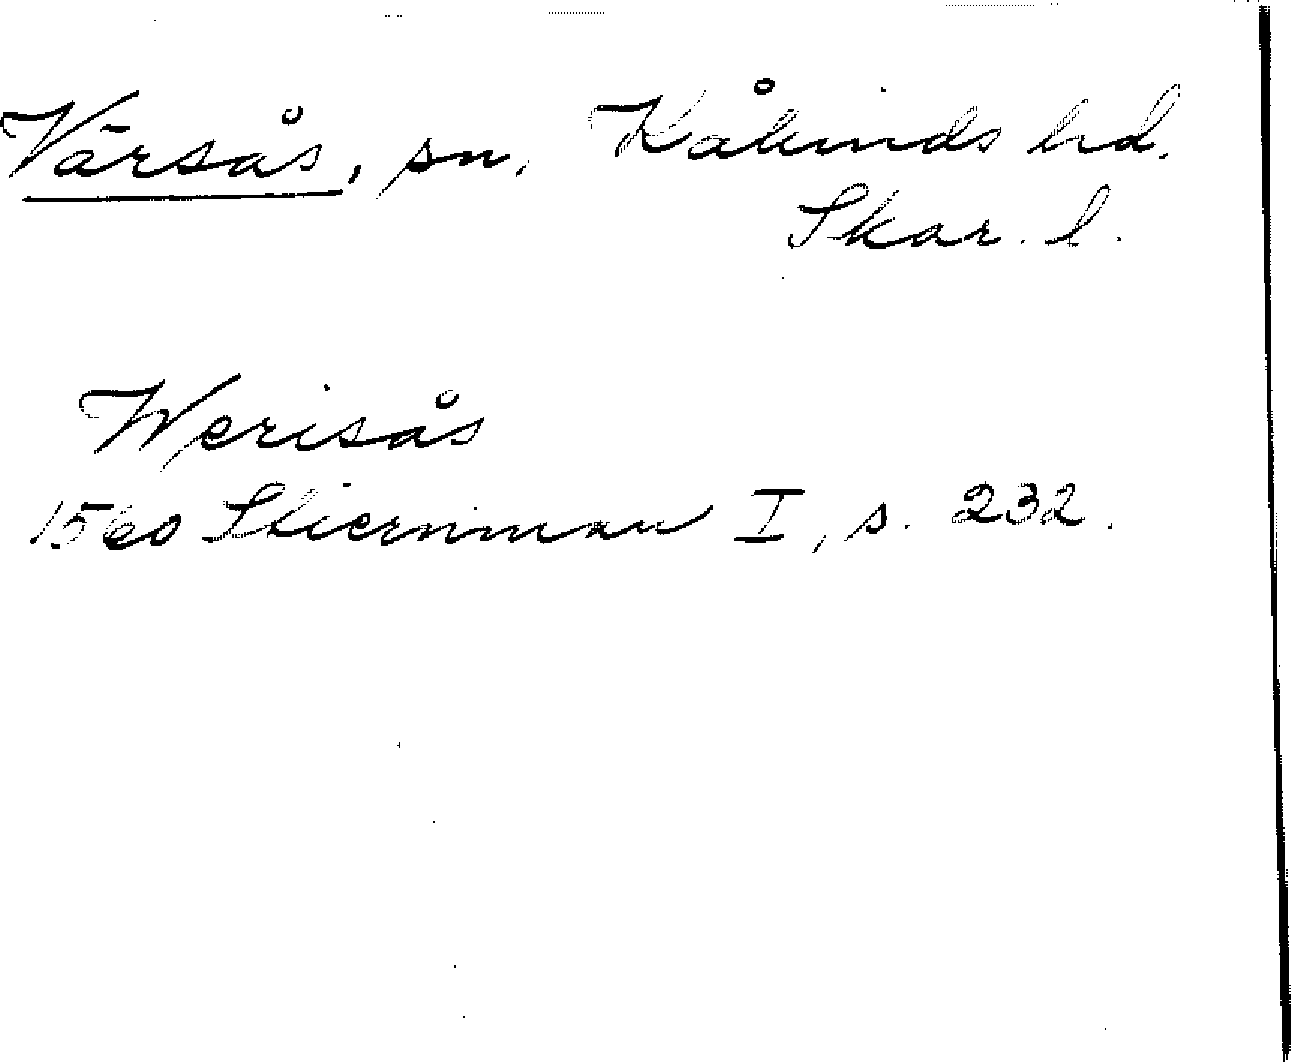 Värsås, sn. Kåkinds hd.
Skar. l.
Werisås
1560 Stiernman I, s. 232.